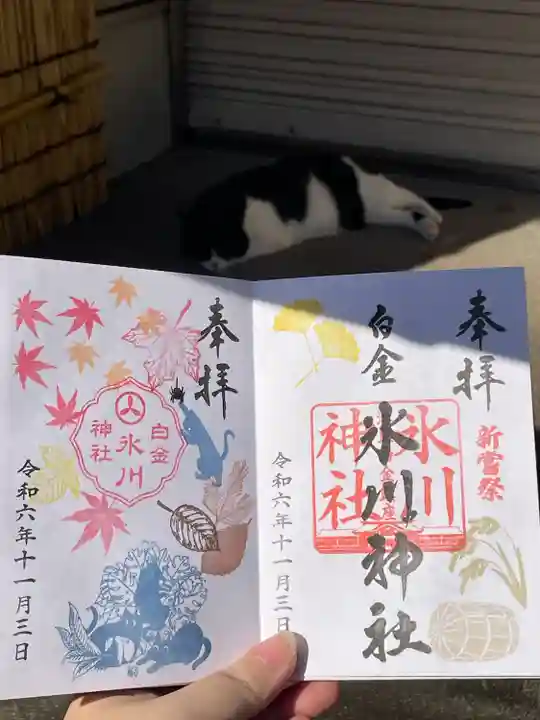 奉拝
白金
氷川
神社
令和六年十一月三日
奉拝
新嘗祭
白金
氷川神社
氷川
神社
令和六年十一月三日